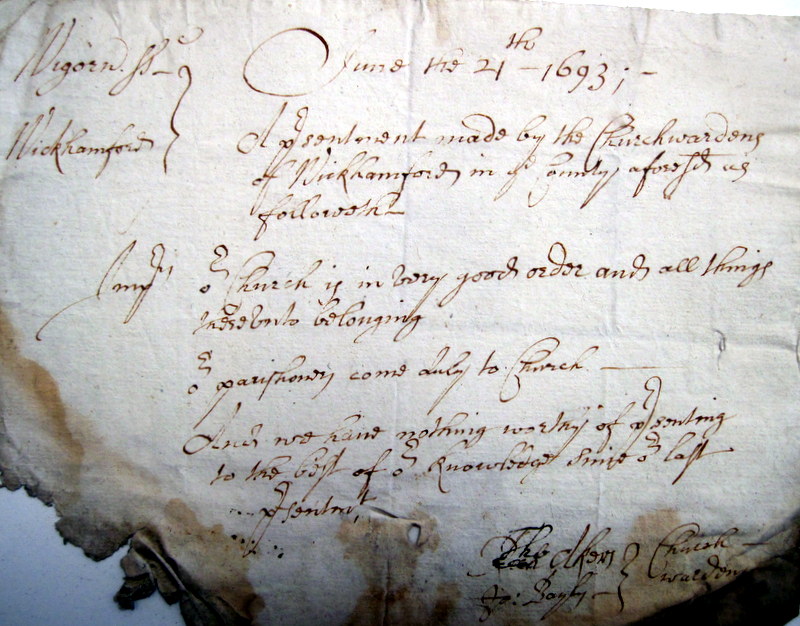 Wigorn. ss
Wickhamford
June the 21th 1693;-
A p'sentment made by the Churchwardens
of Wickhamford in ye County aforesd as
followeth
Impr or Church is in very good order and all things
therevnto belonging
or parishoners come duly to Church
And we have nothing worthy of p'senting
to the best of or knowledge since or last
p'sentmt
Tho Church
wardens